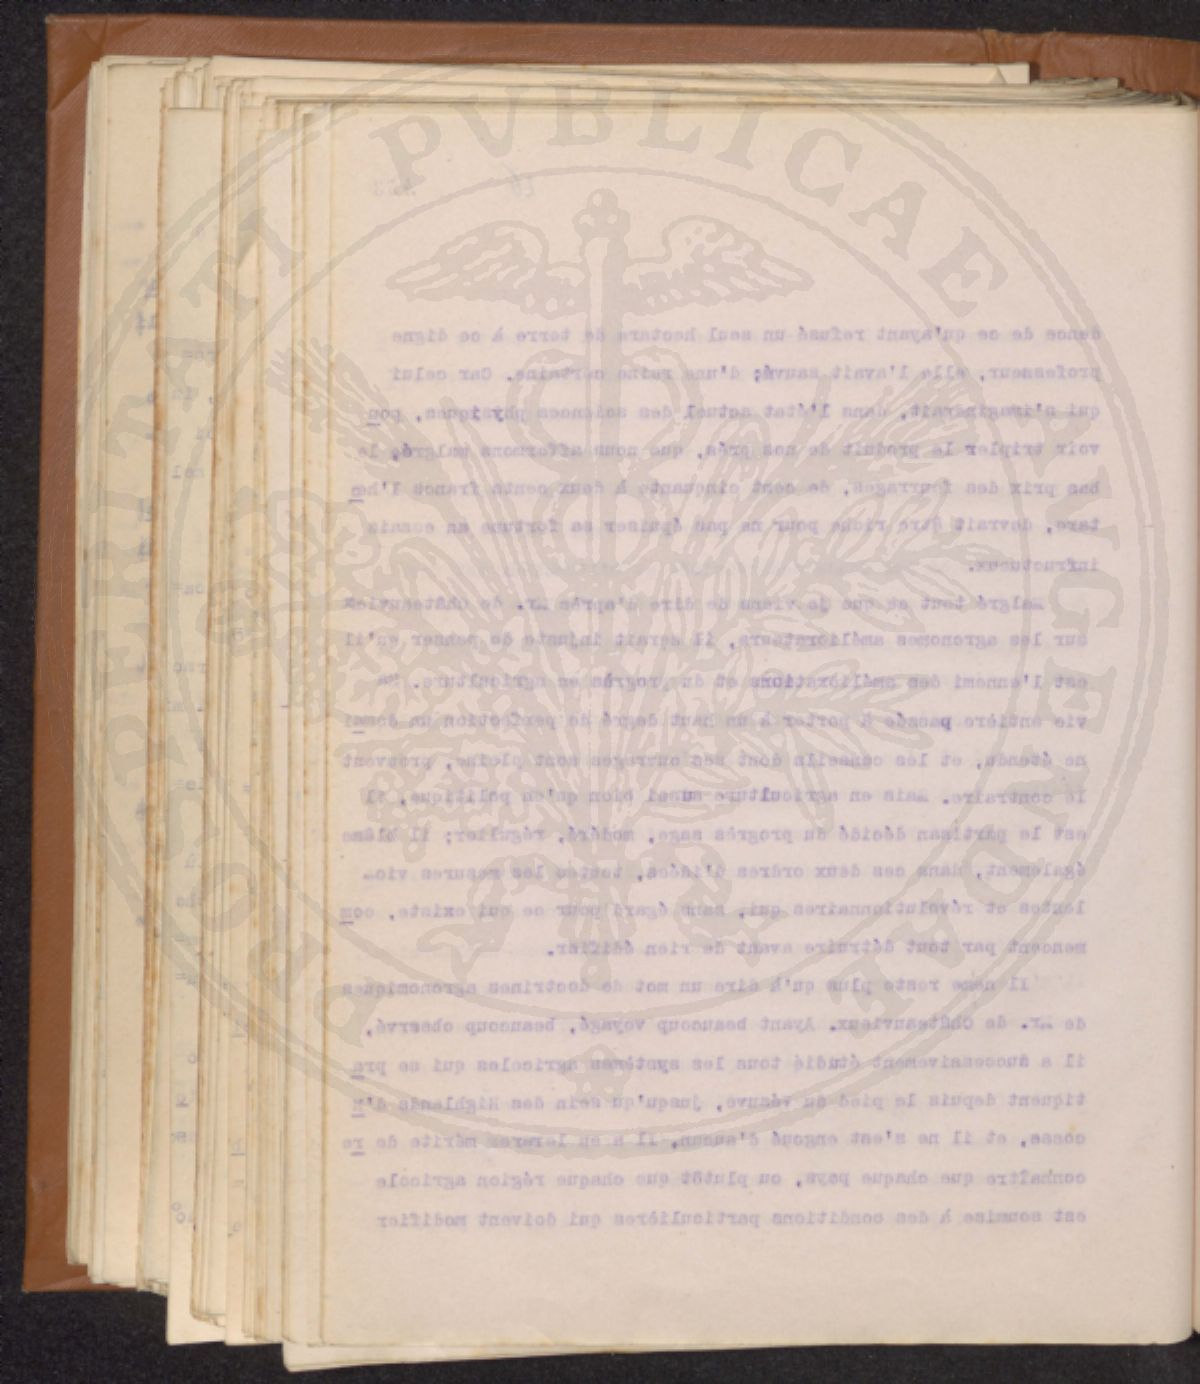 PROSPERITATI PVBLICAE AVGENDAE
dence de ce qu'ayant refusé un seul hectare de terre à ce digne
professeur, elle l'avait sauvé; d'une ruine certaine. Car celui
qui s'imaginerait, dans l'état actuel des sciences physiques, pou
voir tripler le produit de nos prés, que nous affermons malgré, le
bas prix des fourrages, de cent cinquante à deux cents francs l'hec
tare, devrait être riche pour ne pas épuiser sa fortune en essais
infructueux.
Malgré tout ce que je viens de dire d'après Mr. de Châteauvieux
sur les agronomes améliorateurs, il serait injuste de penser qu'il
est l'ennemi des améliorations et du progrès en agriculture. Sa
vie entière passée à porter à un haut degré de perfection un domai
ne étendu, et les conseils dont ses ouvrages sont pleins, prouvent
le contraire. Mais en agriculture aussi bien qu'en politique, il
est le partisan décidé du progrès sage, modéré, régulier; il blâme
également, dans ces deux ordres d'idées, toutes les mesures vio-
lentes et révolutionnaires qui, sans égard pour ce qui existe, com
mencent par tout détruire avant de rien édifier.
Il neme reste plus qu'à dire un mot de doctrines agronomiques
de Mr. de Châteauvieux. Ayant beaucoup voyagé, beaucoup observé,
il a successivement étudié tous les systèmes agricoles qui se pra
tiquent depuis le pied du vésuve, jusqu'qu sein des Highlands d'E
cosse, et il ne s'est engoué d'aucun, il a en le mérite de re
connaître que chaque pays, ou plutôt que chaque région agricole
est soumise à des conditions particulières qui doivent modifier